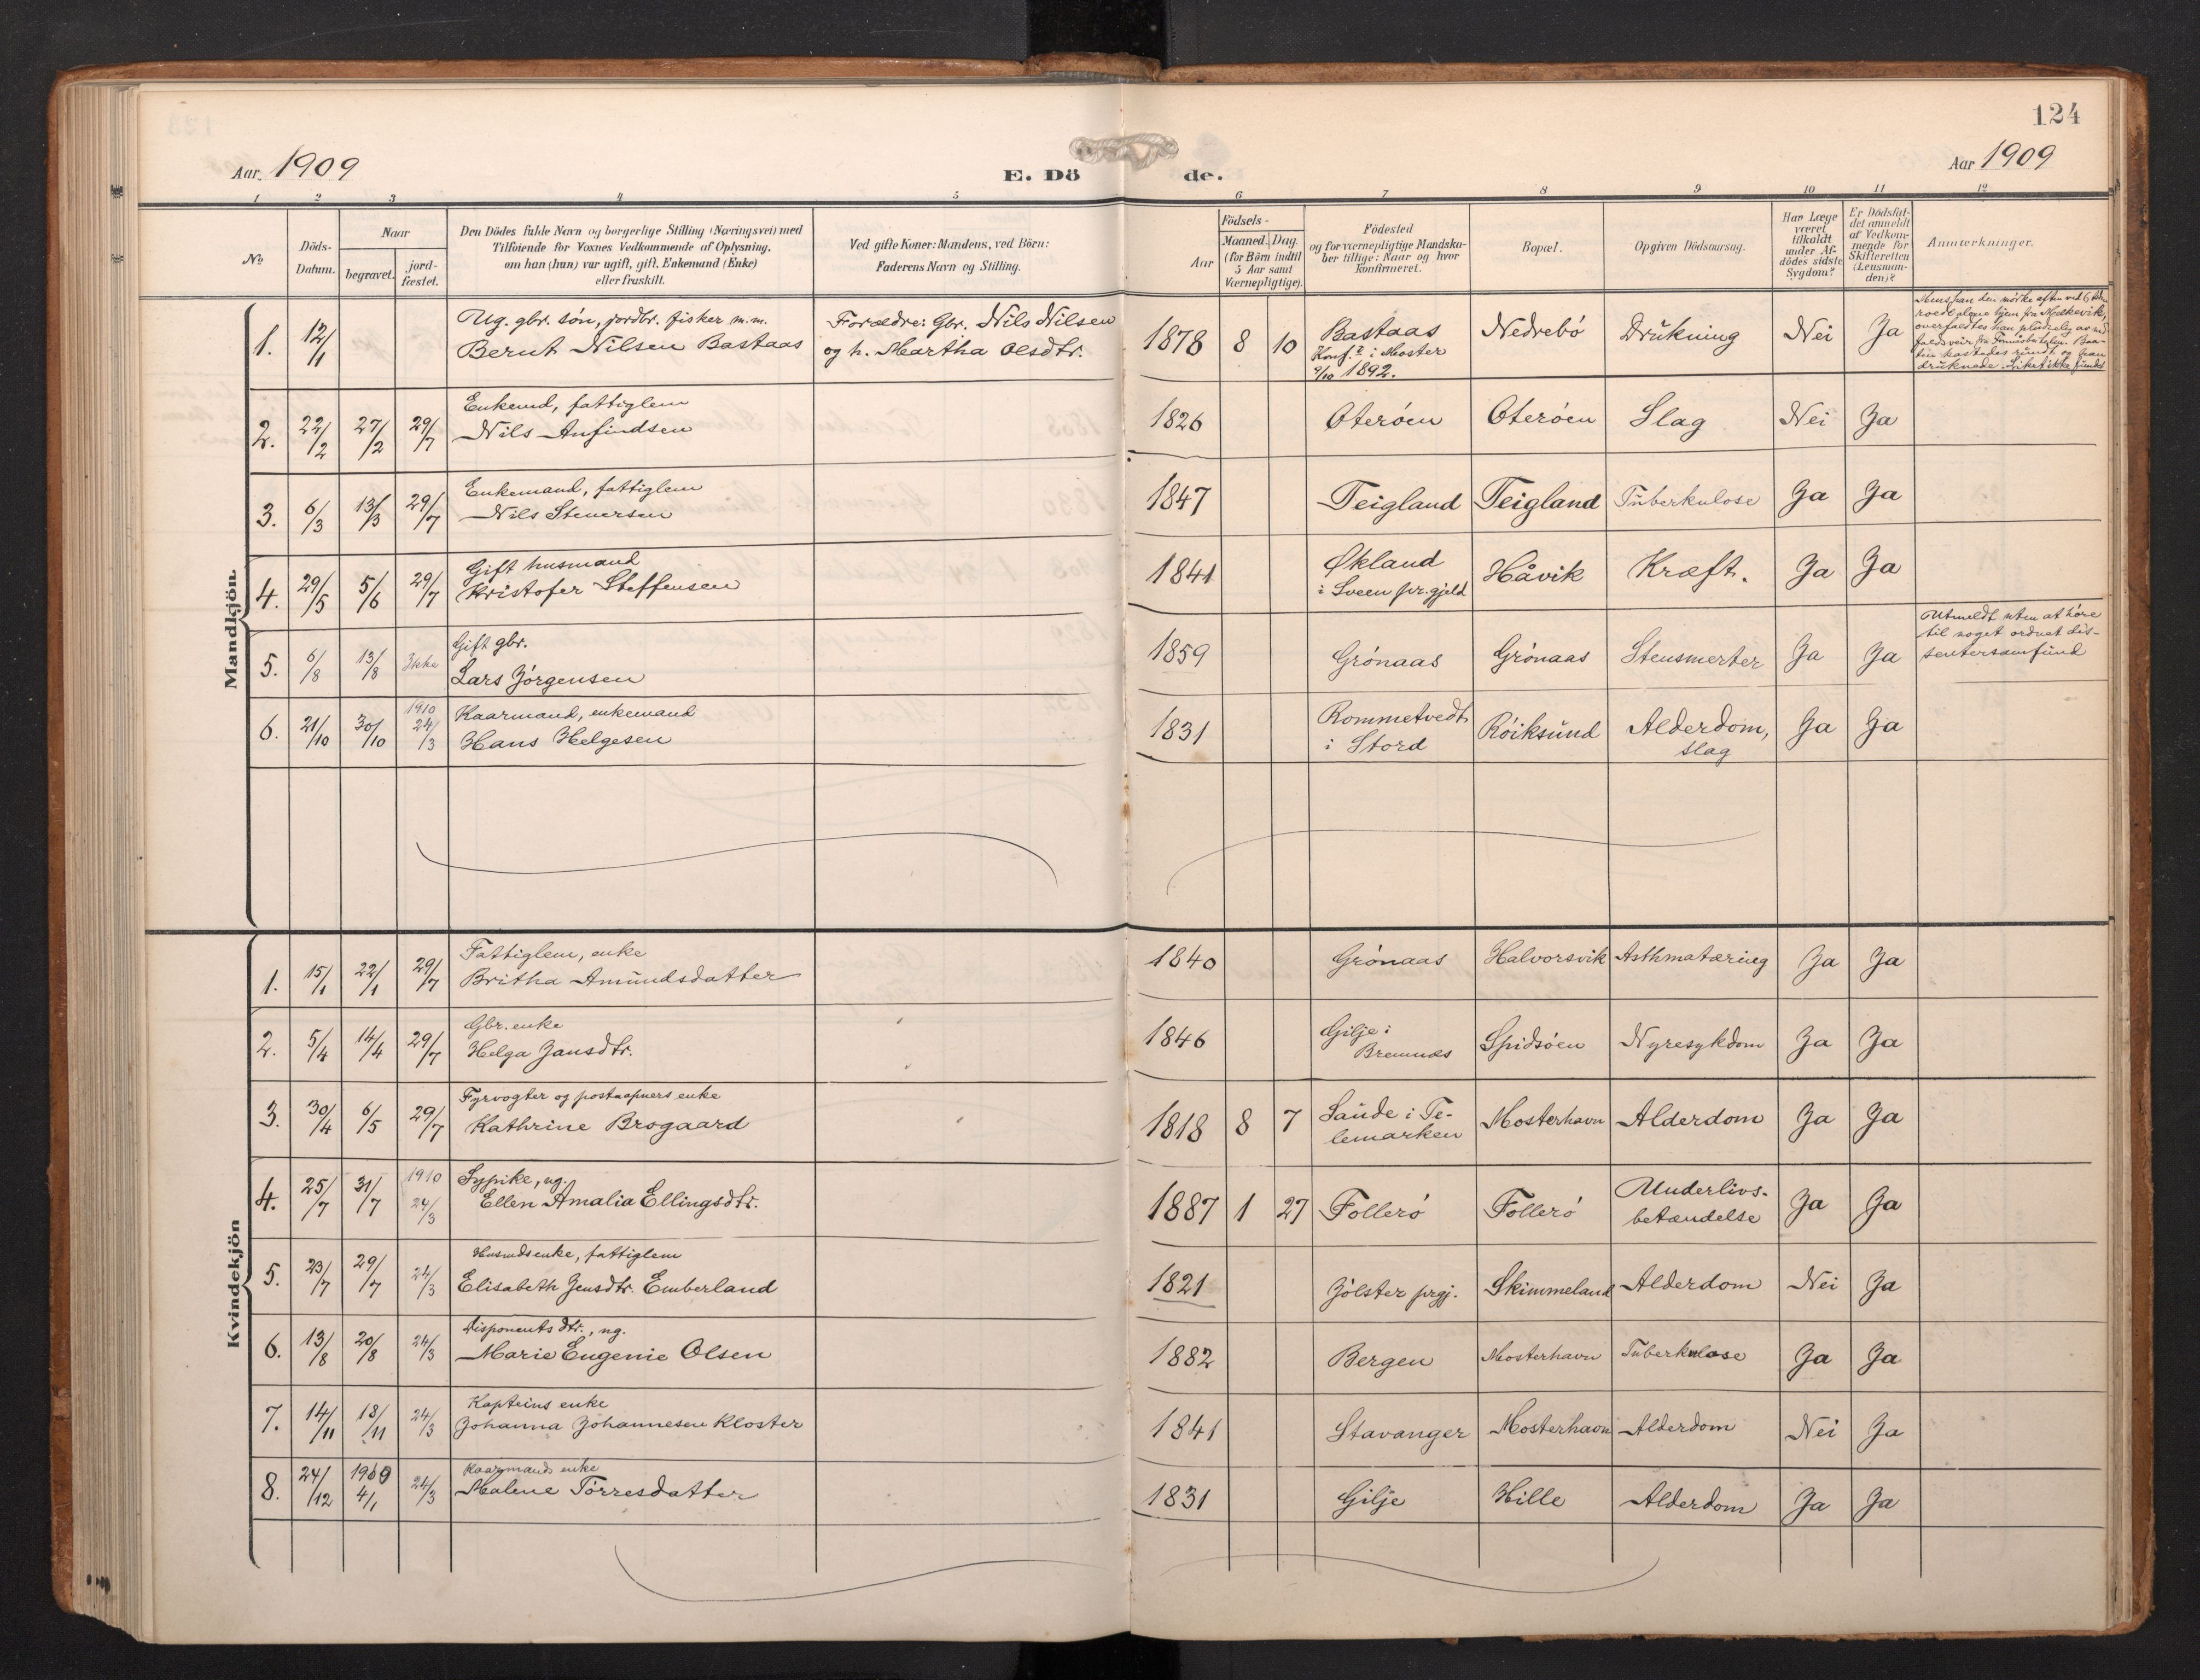 124
Aar 1909
E. Dö de.
Aar 1909
1 2 3 4 5 6 7 8 9 10 11 12
No
Döds-Datum.
Naar
begravet.
jord-fæstet.
Den Dödes fulde Navn og borgerlige Stilling (Næringsvei) med
Tilföiende for Voxnes Vedkommende af Oplysning,
om han (hun) var ugift, gift, Enkemand (Enke)
eller fraskilt.
Ved gifte Koner: Mandens, ved Börn:
Faderens Navn og Stilling.
Födsels-
Aar
Maaned. Dag.
(for Börn indtil
5 Aar samt
Værnepligtige).
Födested
og for værnepligtige Mandska-
ber tillige: Naar og hvor
konfirmeret.
Bopæl.
Opgiven Dödsaarsag.
Har Læge
været
tilkaldt
under Af-
dödes sidste
Sygdom?
Er Dödsfal-
det anmeldt
af Vedkom-
mende for
Skifteretten
(Lensman-
den)?
Anmærkninger.
Mandkjön.
1. 12/1 Ug. gbr. søn, jordbr. fisker m.m.
Bernt Nilsen Bastaas
Forældre: Gbr. Nils Nilsen
og h. Martha Olsdtr.
1878 8 10 Bastaas
Konf. i Moster
2/10 1892.
Nedrebö Drukning Nei Ja
Mens han den mörke aften ved 6 tiden
roede alene hjem fra
overfaldtes han pludselig av
Baa-
ten kastedes rundt og han
druknede. Liket ikke fundet
2. 22/2 27/2 29/7 Enkemd, fattiglem
Nils Anfindsen
1826 Oteröen Oteröen Slag Nei Ja
3. 6/3 13/3 29/7 Enkemand, fattiglem
Nils Stenersen
1847 Teigland Teigland Tuberkulose Ja Ja
4. 29/5 5/6 29/7 Gift husmand
Kristofer Steffensen
1841 Økland
i Sveen pr.gjeld
Håvik Kræft. Ja Ja
5. 6/8 13/8 Ikke Gift gbr.
Lars Jörgensen
1859 Grönaas Grönaas Stensmerter Ja Ja
Utmeldt uten at höre
til noget ordnet dis-
sentersamfund
6. 21/10 30/10 1910 24/3 Kaarmand, enkemand
Hans Helgesen
1831 Rommetvedt
i Stord
Röiksund Alderdom,
slag
Ja Ja
Kvindekjön
1. 15/1 22/1 29/7 Fattiglem, enke
Britha Amundsdatter
1840 Grönaas Halvorsvik Asthmatæring Ja Ja
2. 5/4 14/4 29/7 Gbr. enke
Helga Jansdtr.
1846 Gilje i
Bremnes
Spidsöen Nyresykdom Ja Ja
3. 30/4 6/5 29/7 Fyrvogter og postaapners enke
Kathrine Brogaard
1818 8 7 Saude i Te-
lemarken
Mosterhavn Alderdom Ja Ja
4. 25/7 31/7 1910 24/3 Sypike, ug.
Ellen Amalia Ellingsdtr.
1887 1 27 Follerö Follerö Underlivs-
betændelse
Ja Ja
5. 23/7 29/7 24/3 Husmdsenke, fattiglem
Elisabeth Jensdtr. Emberland
1821 Jölster prgj. Skimmeland Alderdom Nei Ja
6. 13/8 20/8 24/3 Disponents dtr., ug.
Marie Eugenie Olsen
1882 Bergen Mosterhavn Tuberkulose Ja Ja
7. 14/11 18/11 24/3 Kapteins enke
Johanna Johannesen Kloster
1841 Stavanger Mosterhavn Alderdom Nei Ja
8. 24/12 4/1 24/3 Kaarmands enke
Malene Törresdatter
1831 Gilje Hille Alderdom Ja Ja